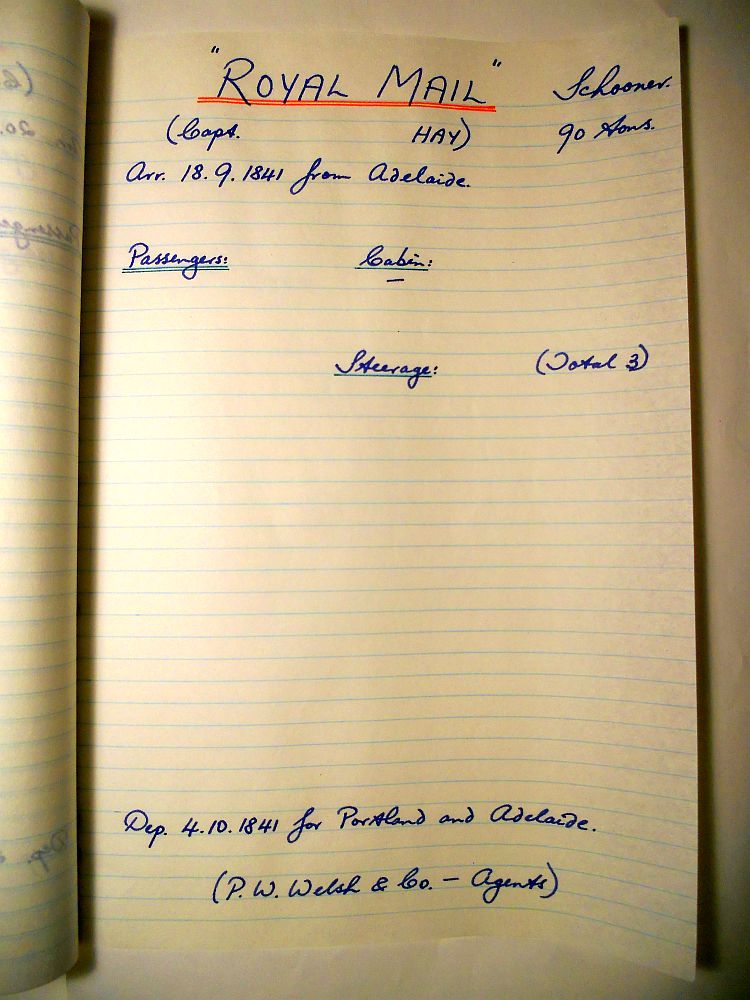 "ROYAL MAIL" Schooner.
(Capt. HAY) 90 tons.
Arr. 18.9.1841 from Adelaide.
Passengers: Cabin:
—
Steerage: (Total 3)
Dep. 4.10.1841 for Portland and Adelaide.
(P. W. Welsh & Co. — Agents)